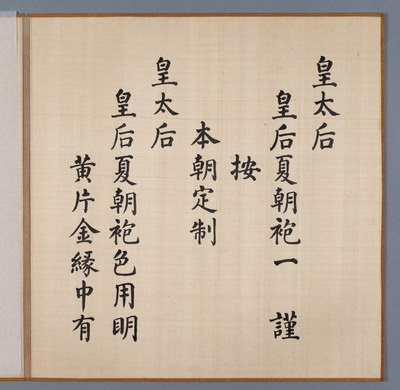 皇太后
皇后夏朝袍一　謹
按
本朝定制
皇太后
皇后夏朝袍色用明
黃片金緣中有